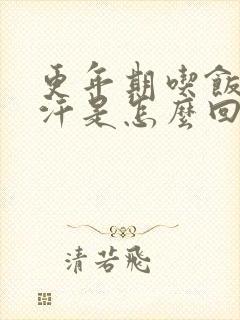 更年期喫飯
汗是怎麼回
清若飛